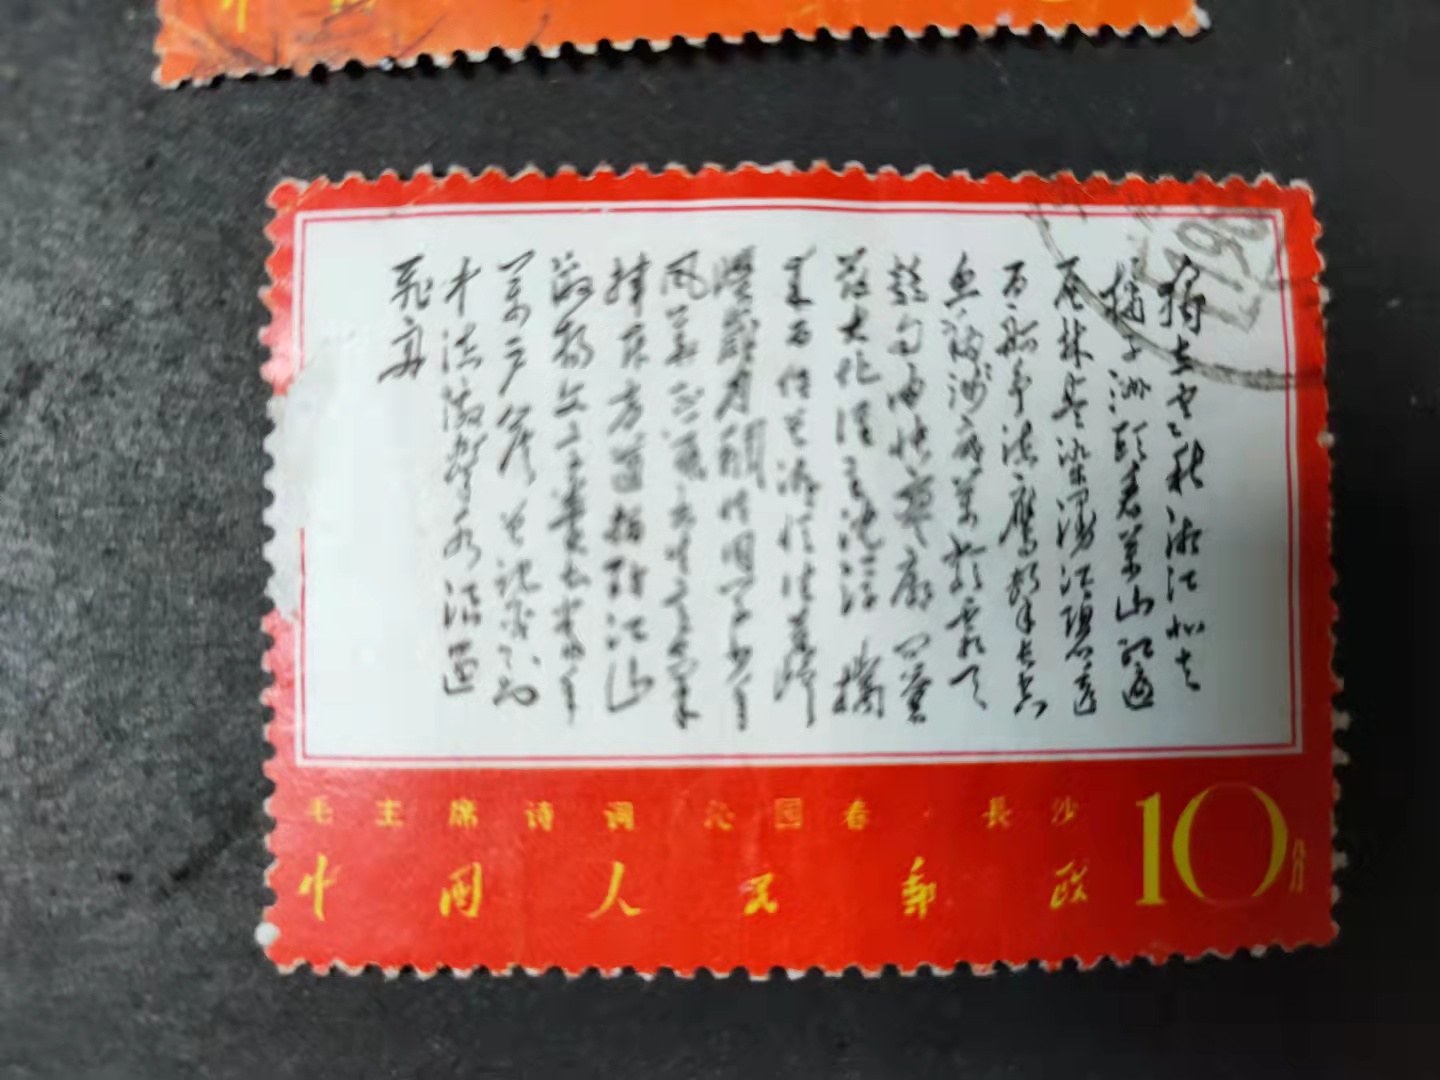 独立寒秋湘江北去
橘子洲头看万山红遍
层林尽染漫江碧透
百舸争流鹰击长空
鱼翔浅底万类霜天
竞自由怅寥廓问苍
茫大地谁主沉浮 携
来百侣曾游忆往昔峥
嵘岁月稠恰同学少年
风华正茂书生意气
挥斥方遒指点江山
激扬文字粪土当年
万户侯曾记否到
中流击水浪遏
飞舟
毛主席诗词 沁园春·長沙
中国人民郵政
10分